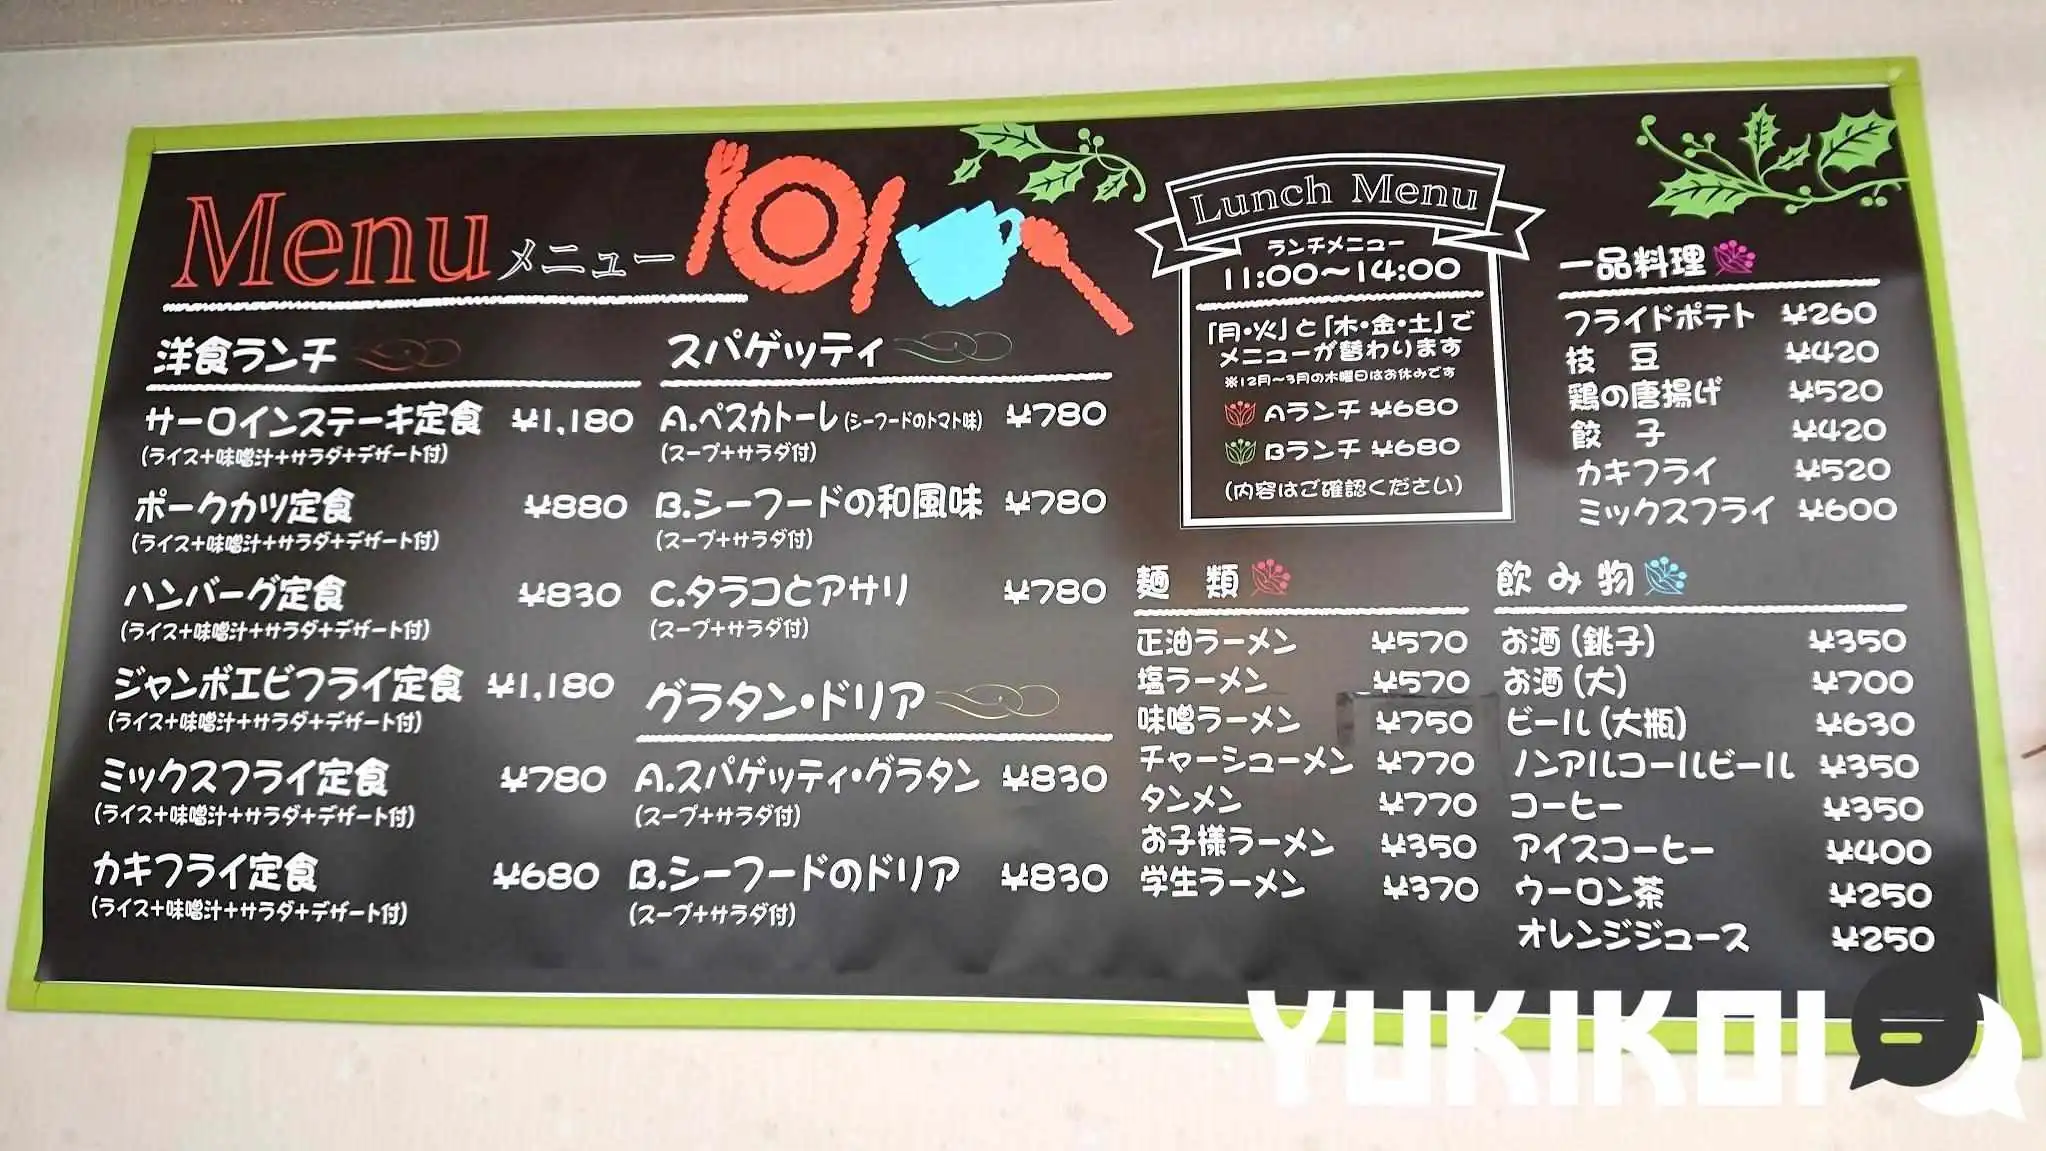 Menu メニュー
洋食ランチ
サーロインステーキ定食 ¥1,180
(ライス+味噌汁+サラダ+デザート付)
ポークカツ定食 ¥880
(ライス+味噌汁+サラダ+デザート付)
ハンバーグ定食 ¥830
(ライス+味噌汁+サラダ+デザート付)
ジャンボエビフライ定食 ¥1,180
(ライス+味噌汁+サラダ+デザート付)
ミックスフライ定食 ¥780
(ライス+味噌汁+サラダ+デザート付)
カキフライ定食 ¥680
(ライス+味噌汁+サラダ+デザート付)
スパゲッティ
A.ペスカトーレ(シーフードのトマト味) ¥780
(スープ+サラダ付)
B.シーフードの和風味 ¥780
(スープ+サラダ付)
C.タラコとアサリ ¥780
(スープ+サラダ付)
グラタン・ドリア
A.スパゲッティ・グラタン ¥830
(スープ+サラダ付)
B.シーフードのドリア ¥830
(スープ+サラダ付)
Lunch Menu
ランチメニュー
11:00～14:00
「月・火」と「木・金・土」で
メニューが替わります
※12月～3月の木曜日はお休みです
Aランチ ¥680
Bランチ ¥680
(内容はご確認ください)
麺 類
正油ラーメン ¥570
塩ラーメン ¥570
味噌ラーメン ¥750
チャーシューメン ¥770
タンメン ¥770
お子様ラーメン ¥350
学生ラーメン ¥370
一品料理
フライドポテト ¥260
枝 豆 ¥420
鶏の唐揚げ ¥520
餃 子 ¥420
カキフライ ¥520
ミックスフライ ¥600
飲み物
お酒(銚子) ¥350
お酒(大) ¥700
ビール(大瓶) ¥630
ノンアルコールビール ¥350
コーヒー ¥350
アイスコーヒー ¥400
ウーロン茶 ¥250
オレンジジュース ¥250
YUKIKOI